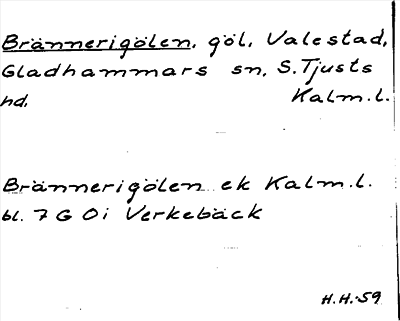 Brännerigölen, göl, Valestad,
Gladhammars sn, S. Tjusts
hd, Kalm. l.
Brännerigölen ek Kalm. l.
bl. 7 G 0 i Verkebäck
H.H.-59